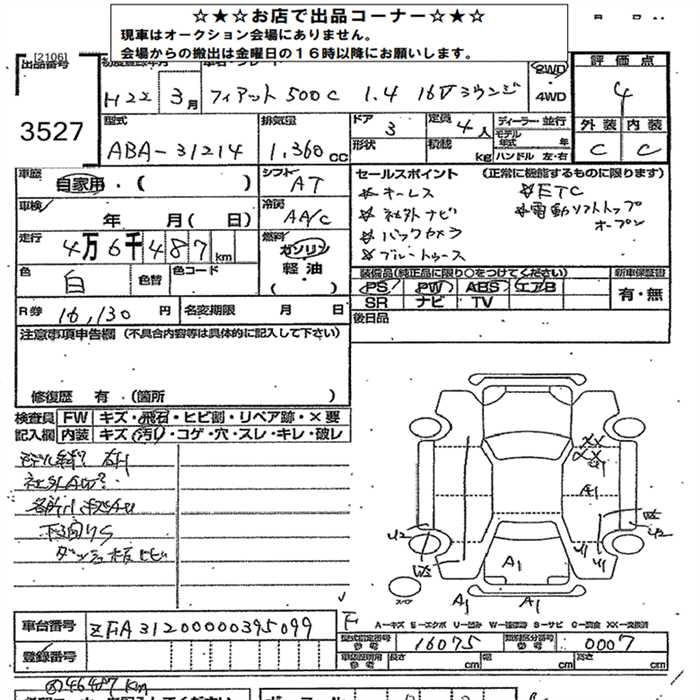 ☆★☆お店で出品コーナー☆★☆
現車はオークション会場にありません。
会場からの搬出は金曜日の16時以降にお願いします。
[2106]
出品番号
3527
H22 3月 フィアット500C 1.4 16Vラウンジ
2WD
4WD
評価点
4
外装 内装
C C
型式
ABA-31214
排気量
1,360cc
ドア 3
形状
定員 4人
積載 kg
ディーラー・並行
モデル年式 年
ハンドル 左・右
車歴
自家用・( )
シフト
AT
車検
年 月( 日)
冷房
AA/C
走行
4万6千487km
燃料
ガソリン
軽油
( )
色
白
色替
色コード
R券 16,130円
名変期限 月 日
セールスポイント (正常に機能するものに限ります)
キーレス
社外ナビ
バックカメラ
ブルートゥース
ETC
電動ソフトトップ
オープン
装備品(純正品に限り○をつけてください)
PS PW ABS エアB
SR ナビ TV
新車保証書
有・無
後日品
注意事項申告欄 (不具合内容等は具体的に記入して下さい)
修復歴 有 (箇所 )
検査員 FW キズ・飛石・ヒビ割・リペア跡・×要
記入欄 内装 キズ・汚れ・コゲ・穴・スレ・キレ・破レ
ダッシュ板ヒビ
XX
A1
A1
U2
U2
U1
U1
A1
A1
A1
スペア
F
A-キズ E-エクボ U-凹み W-補修跡 S-サビ C-腐食 XX-交換済
車台番号
ZFA31200000395099
登録番号
型式指定番号
参考
16075
類別区分番号
参考
0007
長さ cm 幅 cm 高さ cm
46487km